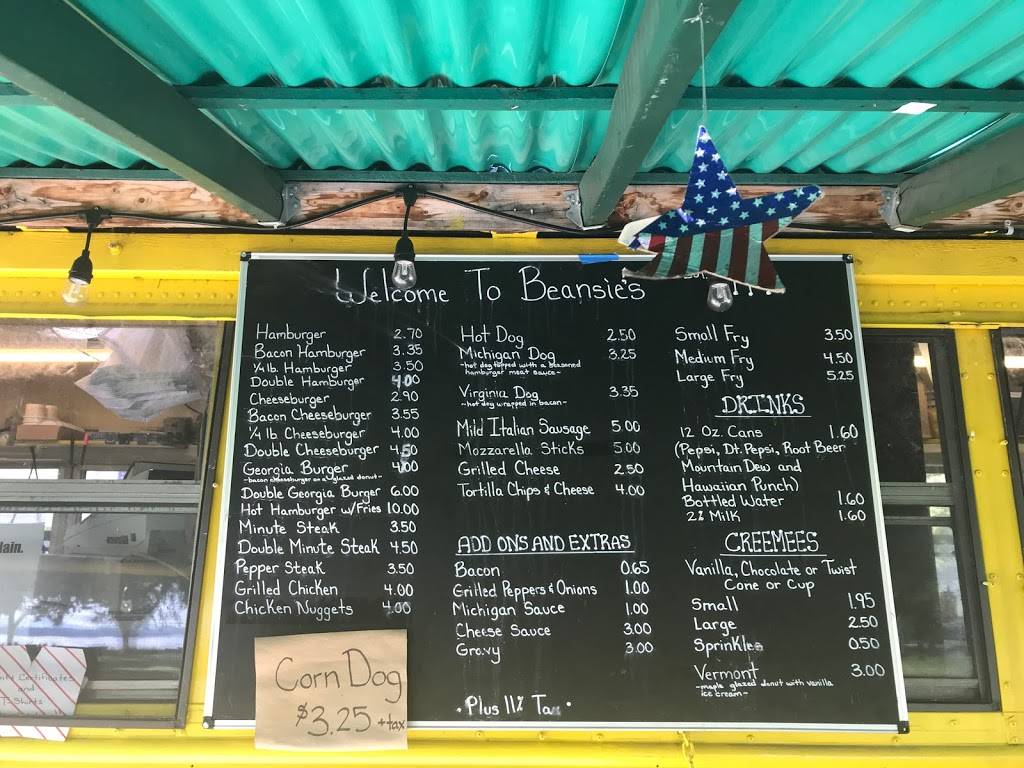 Welcome To Beansie's
Hamburger 2.70
Bacon Hamburger 3.35
1/4 lb Hamburger 3.50
Double Hamburger 4.00
Cheeseburger 2.90
Bacon Cheeseburger 3.55
1/4 lb Cheeseburger 4.00
Double Cheeseburger 4.50
Georgia Burger 4.00
~bacon cheeseburger on a glazed donut~
Double Georgia Burger 6.00
Hot Hamburger w/Fries 10.00
Minute Steak 3.50
Double Minute Steak 4.50
Pepper Steak 3.50
Grilled Chicken 4.00
Chicken Nuggets 4.00
Corn Dog
$3.25 +tax
Hot Dog 2.50
Michigan Dog 3.25
~hot dog topped with a seasoned
hamburger meat sauce~
Virginia Dog 3.35
~hot dog wrapped in bacon~
Mild Italian Sausage 5.00
Mozzarella Sticks 5.00
Grilled Cheese 2.50
Tortilla Chips & Cheese 4.00
ADD ONS AND EXTRAS
Bacon 0.65
Grilled Peppers & Onions 1.00
Michigan Sauce 1.00
Cheese Sauce 3.00
Gravy 3.00
• Plus 11% Tax •
Small Fry 3.50
Medium Fry 4.50
Large Fry 5.25
DRINKS
12 Oz. Cans 1.60
(Pepsi, Dt. Pepsi, Root Beer
Mountain Dew and
Hawaiian Punch)
Bottled Water 1.60
2% Milk 1.60
CREEMEES
Vanilla, Chocolate or Twist
Cone or Cup
Small 1.95
Large 2.50
Sprinkles 0.50
Vermont 3.00
~maple glazed donut with vanilla
ice cream~
Certificates
and
T-Shirts